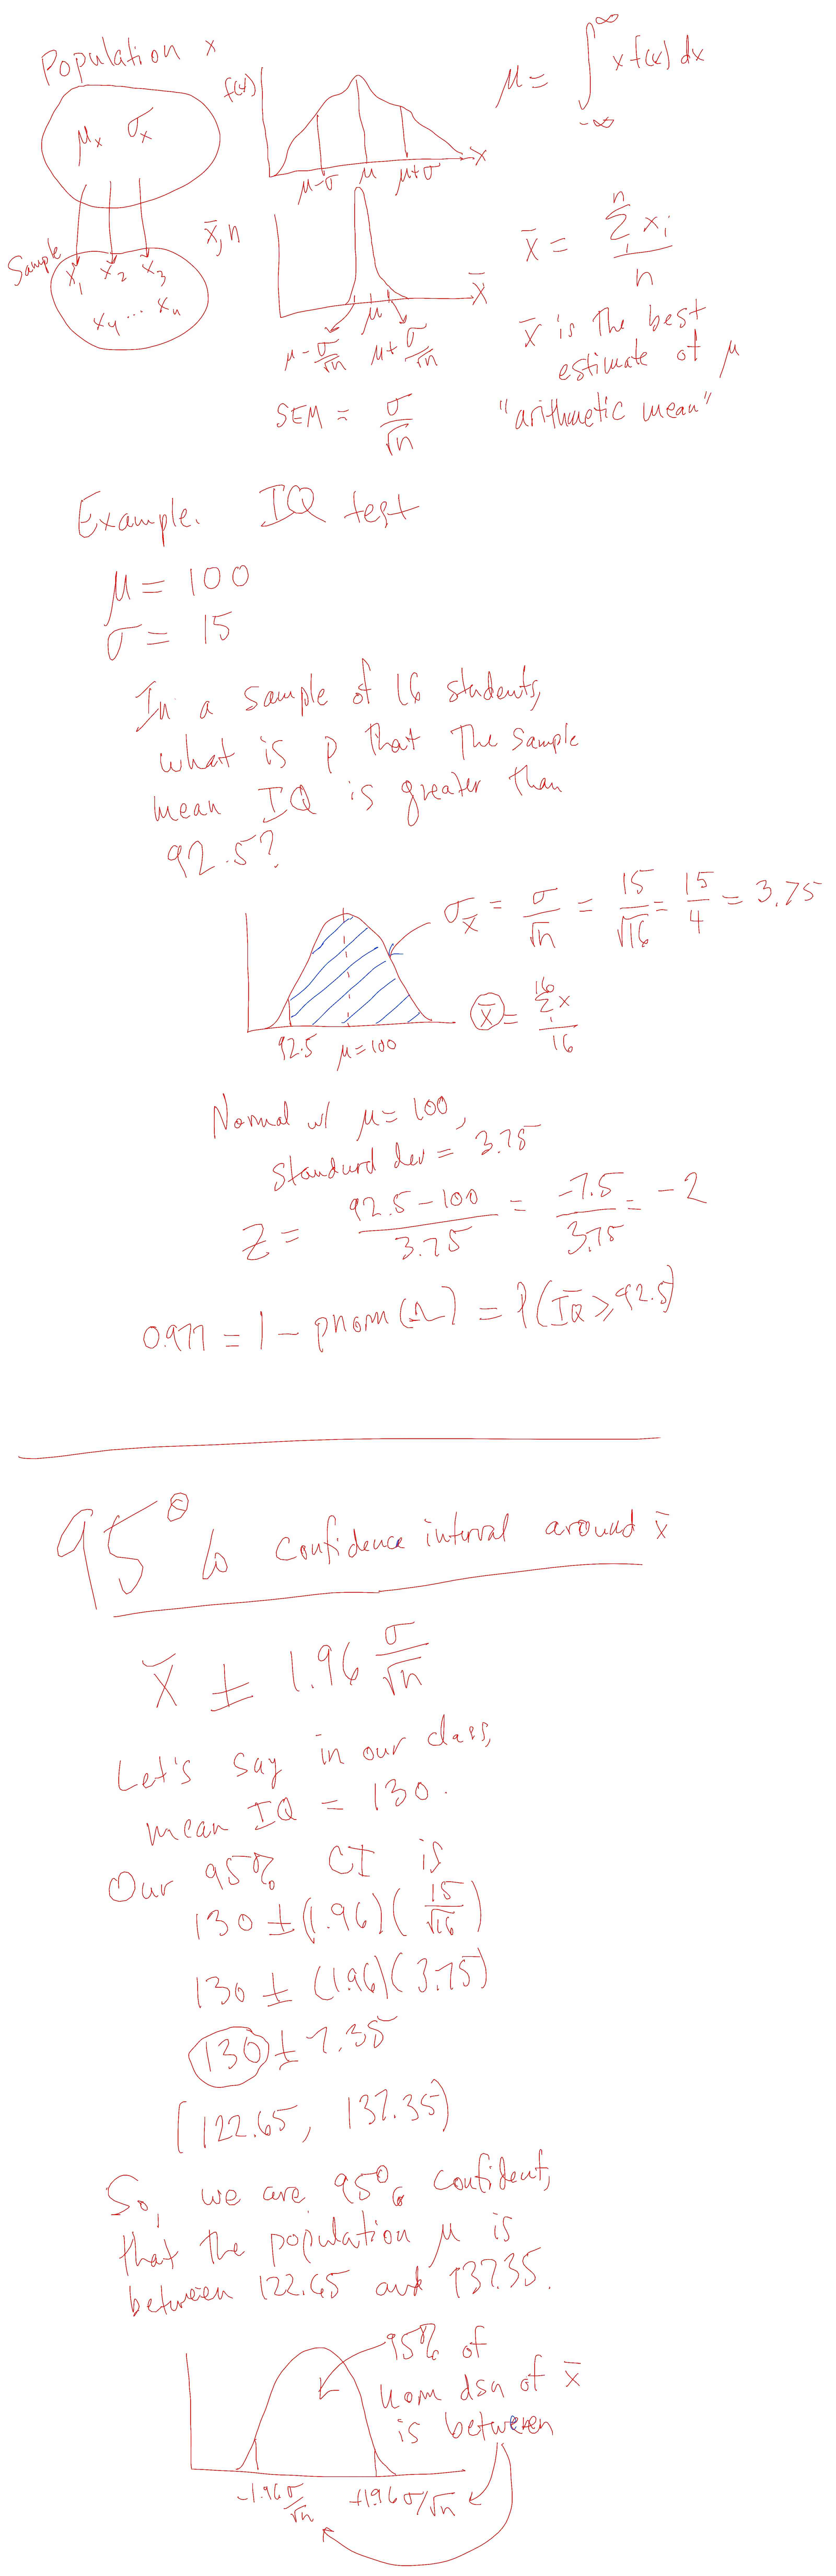 Population x
μx σx
f(x)
μ-σ μ μ+σ x
μ = ∫ -∞ ∞ x f(x) dx
Sample
x1 x2 x3
x4 ... xn
x̄, n
μ x̄
μ - σ/√n μ + σ/√n
x̄ = Σ 1 n xi / n
x̄ is the best
estimate of μ
"arithmetic mean"
SEM = σ/√n
Example. IQ test
μ = 100
σ = 15
In a sample of 16 students,
what is p that the sample
mean IQ is greater than
92.5?
σx̄ = σ/√n = 15/√16 = 15/4 = 3.75
x̄ = Σ 1 16 x / 16
92.5 μ=100
Normal w/ μ = 100,
standard dev = 3.75
Z = 92.5-100 / 3.75 = -7.5 / 3.75 = -2
0.977 = 1 - pnorm( ) = P(IQ̄ ≥ 92.5)
95% confidence interval around x̄
x̄ ± 1.96 σ/√n
Let's say in our class,
mean IQ = 130.
Our 95% CI is
130 ± (1.96)(15/√16)
130 ± (1.96)(3.75)
130 ± 7.35
(122.65, 137.35)
So, we are 95% confident,
that the population μ is
between 122.65 and 137.35.
95% of
norm dsn of x̄
is between
-1.96 σ/√n +1.96 σ/√n